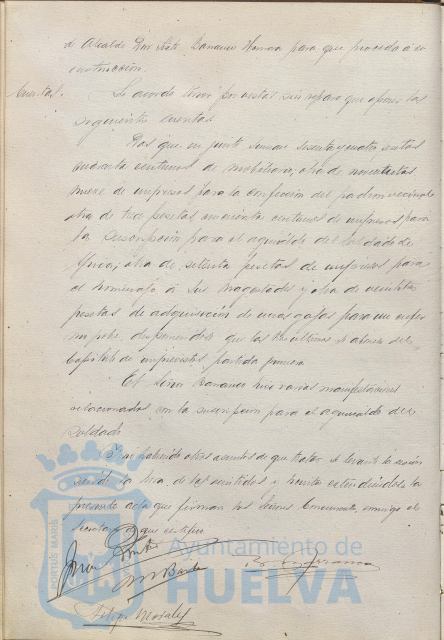 Alcalde para que proceda á su
construcción.
Cuentas. Se acordó tener por vistas sin reparo que oponer las
siguientes cuentas.
Dos que en junto suman sesenta y cuatro pesetas
cuarenta centimos de mobiliario; otra de
de impresos para la confección del padron vecinal
otra de tres pesetas cincuenta centimos de impresos para
la suscripción para el aguinaldo del soldado de
otra de setenta pesetas de impresos para
el homenaje á Sus Magestades y otra de
pesetas de adquisición de unas gafas para un enfer
mo pobre, disponiendose que las ultimas se abonen del
Capitulo de imprevistos partida primera.
El Señor hizo varias manifestaciones
relacionadas con la suscripción para el aguinaldo del
soldado.
Y no habiendo otros asuntos de que tratar se levantó la sesion
siendo la hora de las y treinta extendiendose la
presente acta que firman los Señores Concurrentes conmigo el
Secretario de que certifico.
Ayuntamiento de
HUELVA
PORTUS MARIS
Felipe Morales